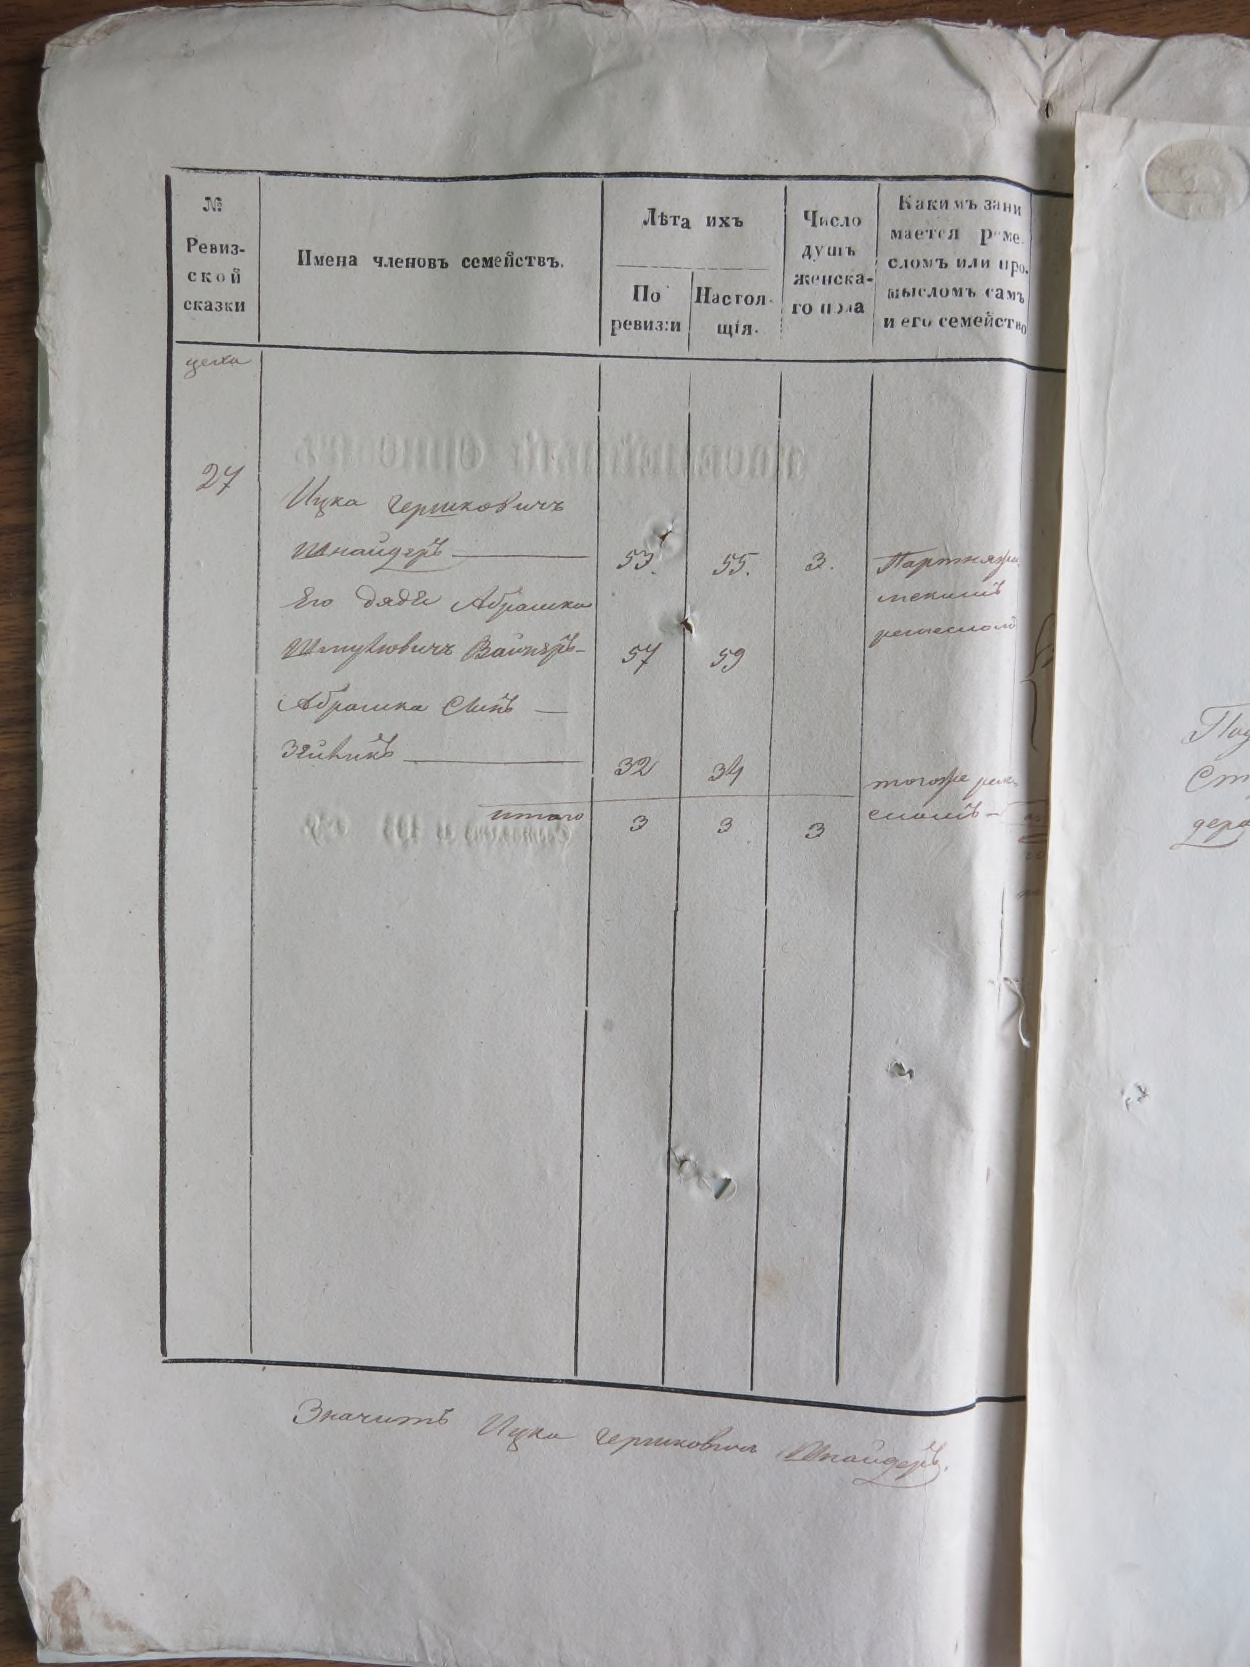 №
Ревиз-
ской
сказки
Имена членовъ семействъ.
Лѣта ихъ
По
ревизіи
Настоя-
щія.
Число
душъ
женска-
го пола
Какимъ зани
мается реме.
сломъ или про.
мысломъ самъ
и его семейство
цеха
27
Ицка Гершковичъ
Шнайдеръ 53. 55. 3. Портняже
Его дядя Абрамка скимъ
Шмулёвичъ Вайнеръ 57 59 ремесломъ
Абрамка Сынъ
Зейликъ 32 34 того же реме
итого 3 3 3 сломъ
Значитъ Ицка Гершковичъ Шнайдеръ.